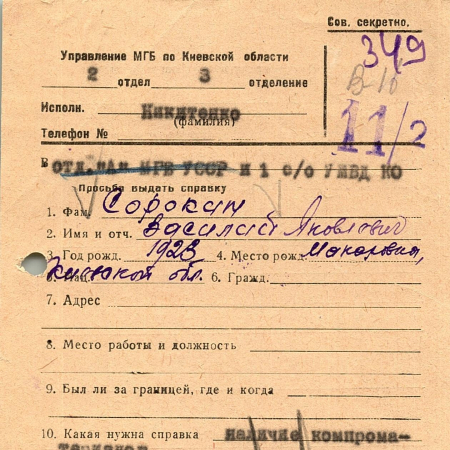 Сов. секретно.
349
В-10
11/2
Управление МГБ по Киевской области
2 отдел 3 отделение
Исполн. Никитенко
(фамилия)
Телефон №
В отд. "А" МГБ УССР и 1 с/о УМВД КО
Просьба выдать справку
1. Фам. Сорокин
2. Имя и отч. Василий Яковлевич
3. Год рожд. 1923 4. Место рожд. Макаровка,
Киевской обл. 6. Гражд.
7. Адрес
8. Место работы и должность
9. Был ли за границей, где и когда
10. Какая нужна справка наличие компрома-